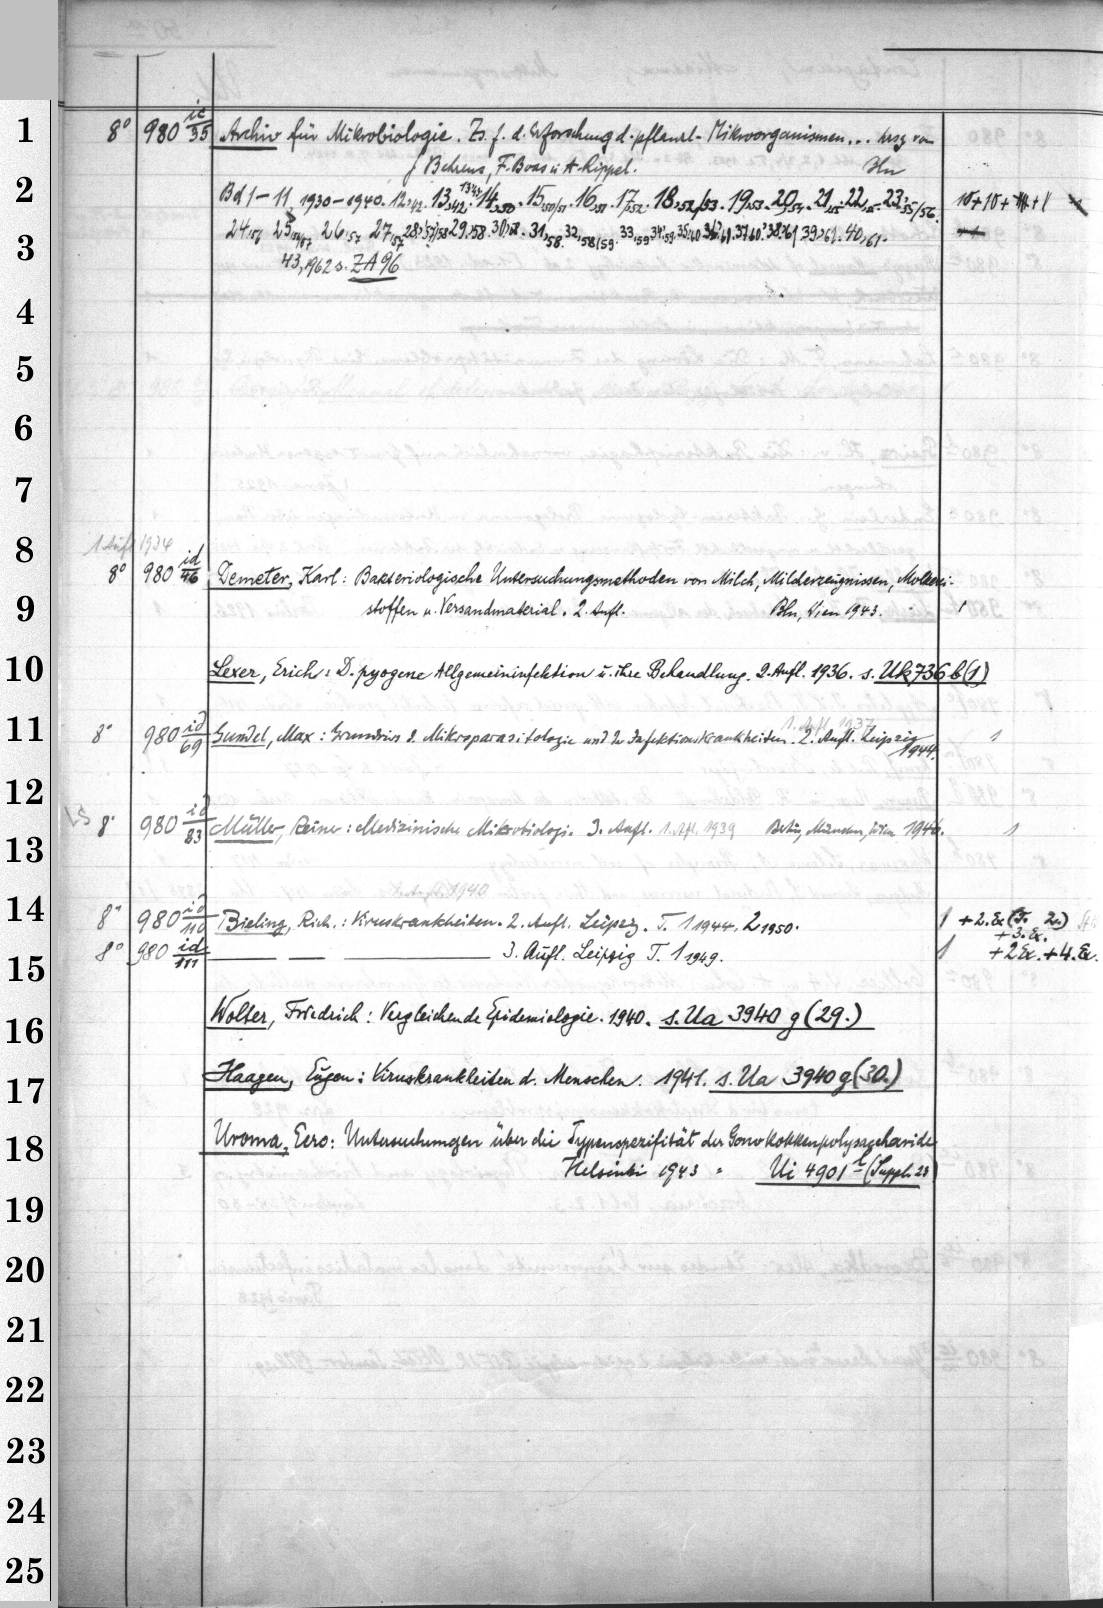 1
8° 980 ic/35 Archiv für Mikrobiologie. Zs. f. d. Erforschung d. pflanzl. Mikroorganismen... hrsg von
J Behrens, F. Boas u A. Rippel. Bln
2
Bd 1-11, 1930-1940. 12,42. 13,42. 14,50. 15,50/51. 16,51. 17,52. 18,52/53. 19,53. 20,54. 21, 22, 23,55/56.
3
24,56 25 26,57 27,57 28,57/58 29,58. 30,58. 31,58. 32,58/59. 33,59 34,59 35,60 36 37,60 38,61 39,61. 40,61.
43,1962 s. ZA 96
4
5
6
7
8
1 Aufl 1934
8° 980 id/46 Demeter, Karl: Bakteriologische Untersuchungsmethoden von Milch, Milcherzeugnissen, Molkerei-
9
stoffen u. Versandmaterial. 2. Aufl. Bln, Wien 1943. 1
10
Lexer, Erich: D. pyogene Allgemeininfektion u. ihre Behandlung. 2. Aufl. 1936. s. Uk 736 b (1)
11
1. Aufl. 1937
8° 980 id/69 Gundel, Max: Grundriss d. Mikroparasitologie und d. Infektionskrankheiten. 2. Aufl. Leipzig 1
1944.
12
LS 8° 980 id/83 Müller, Reiner: Medizinische Mikrobiologi. 3. Aufl. 1. Afl. 1939 Berlin, München, Wien 1946. 1
13
14
1940
8° 980 id/110 Bieling, Rich.: Viruskrankheiten. 2. Aufl. Leipzig. T. 1 1944. 2 1950. 1 +2. Ex (T. 2.)
+3. Ex.
15
8° 980 id/111 — — — 3. Aufl. Leipzig T. 1 1949. 1 +2 Ex. +4. Ex.
16
Wolter, Friedrich: Vergleichende Epidemiologie. 1940. s. Ua 3940 g (29.)
17
Haagen, Eugen: Viruskrankheiten d. Menschen. 1941. s. Ua 3940 g (30.)
18
Uroma, Eero: Untersuchungen über die Typenspezifität der Gonokokkenpolysaccharide
Helsinki 1943 = Ui 4901 (Suppl. 23)
19
20
21
22
23
24
25